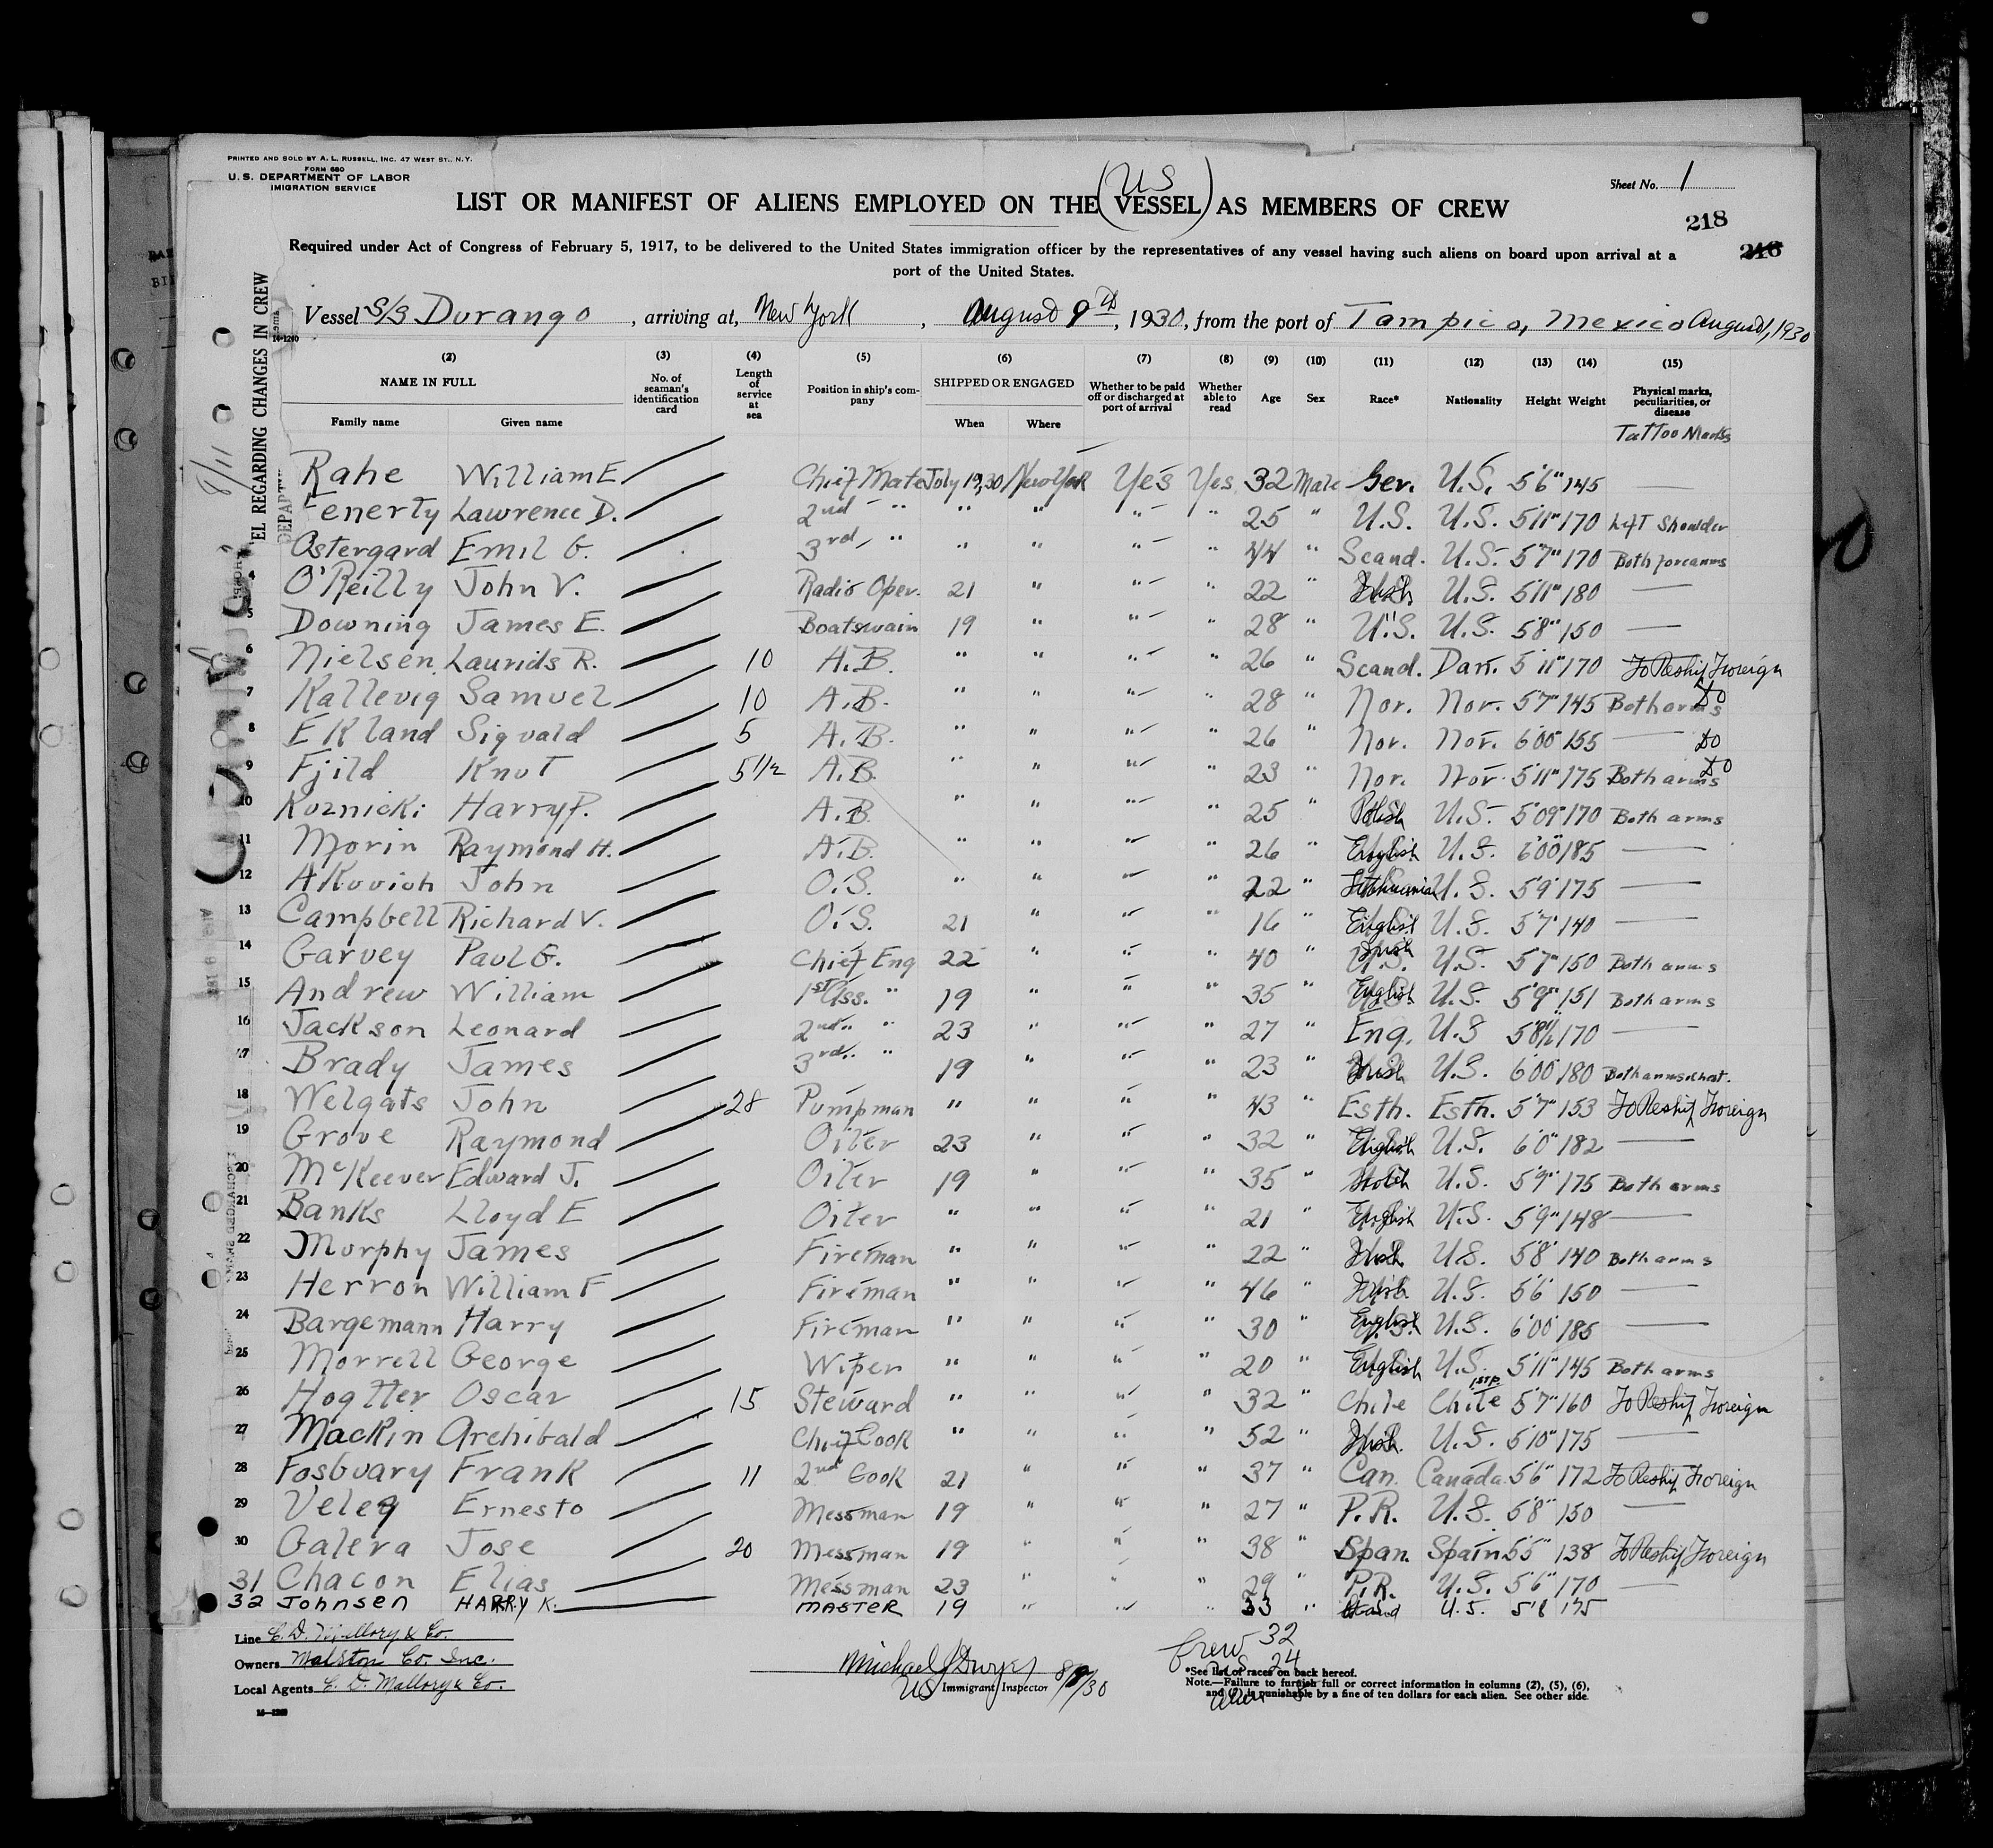 PRINTED AND SOLD BY A. L. RUSSELL, INC. 47 WEST ST., N.Y.
FORM 680
U. S. DEPARTMENT OF LABOR
IMIGRATION SERVICE
Sheet No. 1
US
LIST OR MANIFEST OF ALIENS EMPLOYED ON THE (VESSEL) AS MEMBERS OF CREW
218
Required under Act of Congress of February 5, 1917, to be delivered to the United States immigration officer by the representatives of any vessel having such aliens on board upon arrival at a
port of the United States.
EL REGARDING CHANGES IN CREW
8/11
Vessel S/S Durango, arriving at, New York, August 9th, 1930, from the port of Tampico, Mexico August 1, 1930
14-1240
(2) (3) (4) (5) (6) (7) (8) (9) (10) (11) (12) (13) (14) (15)
NAME IN FULL No. of seaman's identification card Length of service at sea Position in ship's company SHIPPED OR ENGAGED Whether to be paid off or discharged at port of arrival Whether able to read Age Sex Race* Nationality Height Weight Physical marks, peculiarities, or disease
Family name Given name When Where Tattoo Marks
Rahe William E Chief Mate July 19,30 New York Yes Yes 32 Male Ger. U.S. 5'6" 145
Fenerty Lawrence D. 2nd " " " " " 25 " U.S. U.S. 5'11" 170 Left Shoulder
Ostergard Emil G. 3rd, " " " " " 44 " Scand. U.S. 5'7" 170 Both forearms
4 O'Reilly John V. Radio Oper. 21 " " " 22 " Irish U.S. 5'11" 180 —
5 Downing James E. Boatswain 19 " " " 28 " U.S. U.S. 5'8" 150 —
6 Nielsen Laurids R. 10 A.B. " " " " 26 " Scand. Dan. 5'11" 170 To Reship Foreign
7 Kallevig Samuel 10 A.B. " " " " 28 " Nor. Nor. 5'7" 145 Both arms Do
8 Ekland Sigvald 5 A.B. " " " " 26 " Nor. Nor. 6'00" 155 — Do
9 Fjild Knut 5 1/2 A.B. " " " " 23 " Nor. Nor. 5'11" 175 Both arms Do
10 Koznicki Harry P. A.B. " " " " 25 " Polish U.S. 5'09" 170 Both arms
11 Morin Raymond H. A.B. " " " " 26 " English U.S. 6'00" 185 —
12 Akovich John O.S. " " " " 22 " Lithuanian U.S. 5'9" 175 —
13 Campbell Richard V. O.S. 21 " " " 16 " English U.S. 5'7" 140 —
14 Garvey Paul G. Chief Eng 22 " " " 40 " Irish U.S. 5'7" 150 Both arms
15 Andrew William 1st Ass. " 19 " " " 35 " English U.S. 5'9" 151 Both arms
16 Jackson Leonard 2nd " " 23 " " " 27 " Eng. U.S 5'8 1/2" 170 —
17 Brady James 3rd " " 19 " " " 23 " Irish U.S. 6'00" 180 Both arms & chest.
18 Welgats John 28 Pumpman " " " " 43 " Esth. Esth. 5'7" 153 To Reship Foreign
19 Grove Raymond Oiler 23 " " " 32 " English U.S. 6'0" 182 —
20 McKeever Edward J. Oiler 19 " " " 35 " Scotch U.S. 5'9" 175 Both arms
21 Banks Lloyd E Oiler " " " " 21 " English U.S. 5'9" 148 —
22 Murphy James Fireman " " " " 22 " Irish U.S. 5'8" 140 Both arms
23 Herron William F Fireman " " " " 46 " Irish U.S. 5'6" 150 —
24 Bargemann Harry Fireman " " " " 30 " English U.S. 6'00" 185 —
25 Morrell George Wiper " " " " 20 " English U.S. 5'11" 145 Both arms
26 Hogtter Oscar 15 Steward " " " " 32 " Chile Chile 5'7" 160 To Reship Foreign
27 Mackin Archibald Chief Cook " " " " 52 " Irish. U.S. 5'10" 175 —
28 Fosbuary Frank 11 2nd Cook 21 " " " 37 " Can. Canada 5'6" 172 To Reship Foreign
29 Veleq Ernesto Messman 19 " " " 27 " P.R. U.S. 5'8" 150 —
30 Galera Jose 20 Messman 19 " " " 38 " Span. Spain 5'5" 138 To Reship Foreign
31 Chacon Elias Messman 23 " " " 29 " P.R. U.S. 5'6" 170 —
32 Johnsen HARRY K. MASTER 19 " " " 33 " Scand U.S. 5'8 175
Line C. D. Mallory & Co.
Owners Malston Co. Inc.
Local Agents C. D. Mallory & Co.
Michael J Dwyer 8/9/30
US Immigrant Inspector
Crew 32
US 24
Alien 8
*See list of races on back hereof.
Note.—Failure to furnish full or correct information in columns (2), (5), (6),
and (7) is punishable by a fine of ten dollars for each alien. See other side.